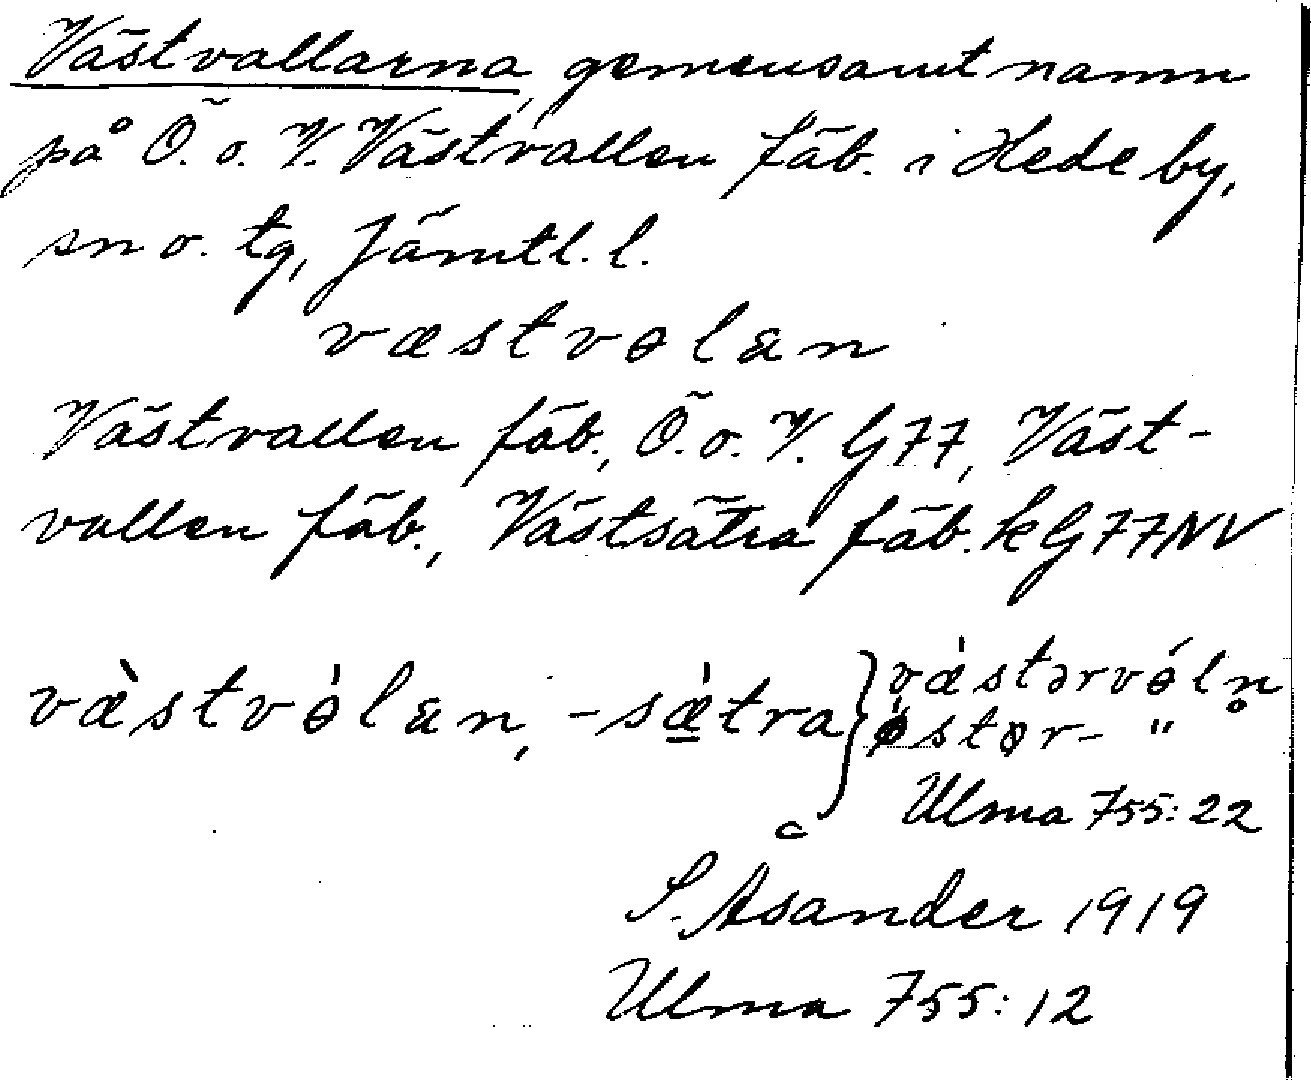 Västvallarna, gemensamt namn
på Ö. o. V. Västvallen fäb. i Hede by,
sn o. tg, Jämtl. l.
væstvɵlan
Västvallen fäb., Ö. o. V. G77, Väst-
vallen fäb., Västsätra fäb. k G77NV
væ̀stvɵ́lan, -sæ̀tra } væ̀stərvɵ́ln̥
østər- "
Ulma 755:22
S. Åsander 1919
Ulma 755:12